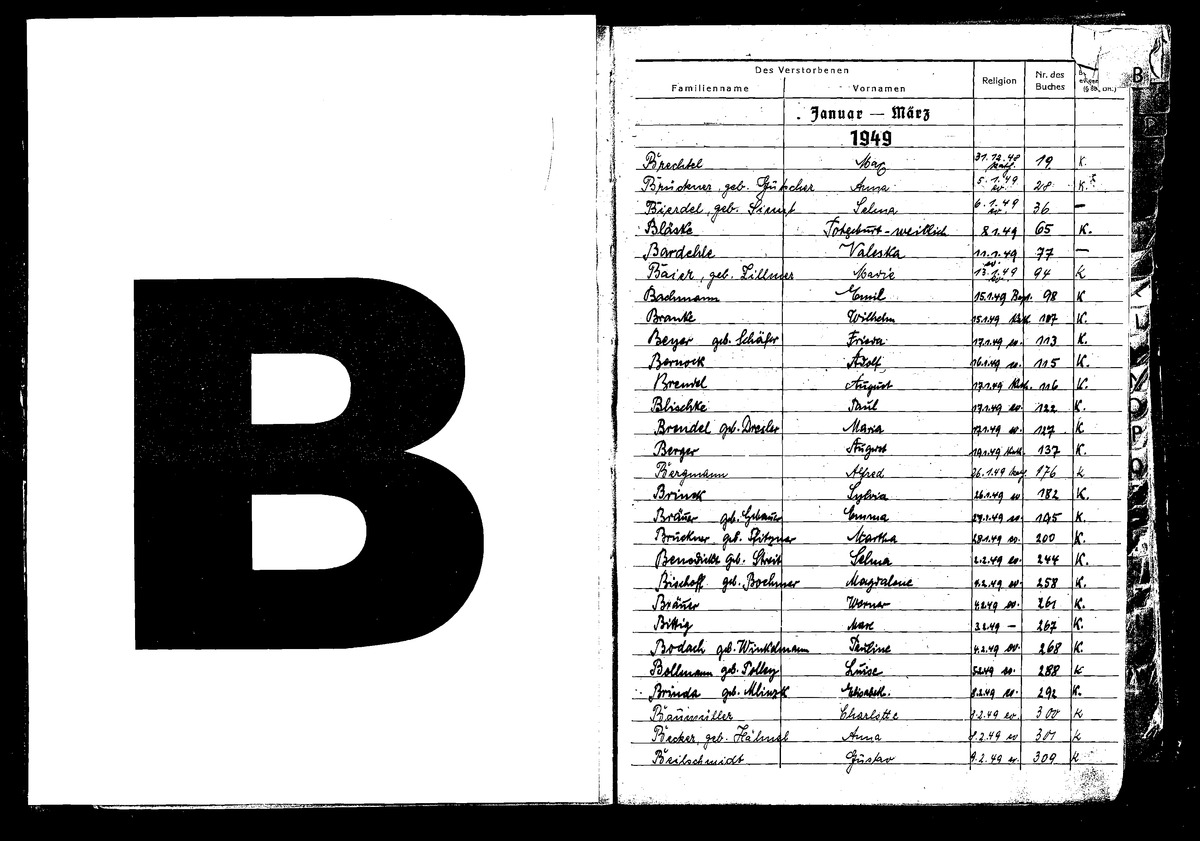 B
B
Des Verstorbenen
Familienname Vornamen Religion Nr. des Buches
Januar — März
1949
Brechtel Max 31.12.48 kath. 19 K.
Brückner, geb. Gütscher Anna 5.1.49 ev. 28 K.
Bierdel, geb. Selma 6.1.49 ev. 36 —
Bläske Totgeburt - weiblich 8.1.49 65 K.
Bardehle Valeska 11.1.49 ev. 77 —
Baier, geb. Zillmer Marie 13.1.49 ev. 94 K
Bachmann Emil 15.1.49 98 K
Branke Wilhelm 15.1.49 Kath. 107 K.
Beyer geb. Schäfer Frieda 17.1.49 ev. 113 K.
Bernock Adolf 16.1.49 ev. 115 K.
Brendel August 17.1.49 Kath. 116 K.
Blischke Paul 17.1.49 ev. 122 K.
Brendel geb. Dresler Maria 17.1.49 ev. 127 K
Berger August 19.1.49 Kath. 137 K.
Bergmann Alfred 26.1.49 kath 176 K
Brinck Sylvia 26.1.49 ev 182 K.
Bräuer geb. Gebauer Emma 27.1.49 ev. 195 K.
Brückner geb. Pfitzner Martha 28.1.49 ev. 200 K.
Benedickt geb. Streit Selma 2.2.49 ev. 244 K.
Bischoff geb. Boehmer Magdalene 4.2.49 ev. 258 K.
Bräuer Werner 4.2.49 ev. 261 K.
Bittig Max 3.2.49 — 267 K.
Bodach geb. Winkelmann Pauline 4.2.49 ev. 268 K.
Bollmann geb. Polley Luise 5.2.49 ev. 288 K
Brinda geb. Mlinzk Elisabeth. 8.2.49 ev. 292 K.
Baumüller Charlotte 8.2.49 ev. 300 K
Becker, geb. Hähnel Anna 8.2.49 ev 301 K
Beilschmidt Gustav 9.2.49 ev. 309 K